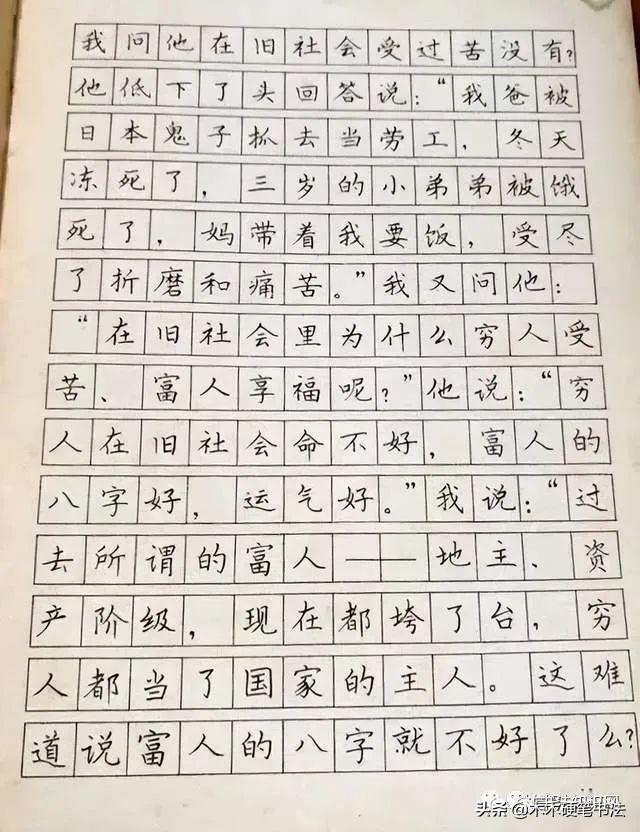 我问他在旧社会受过苦没有?
他低下了头回答说:“我爸被
日本鬼子抓去当劳工,冬天
冻死了,三岁的小弟弟被饿
死了,妈带着我要饭,受尽
了折磨和痛苦。”我又问他:
“在旧社会里为什么穷人受
苦、富人享福呢?”他说:“穷
人在旧社会命不好,富人的
八字好,运气好。”我说:“过
去所谓的富人——地主、资
产阶级,现在都垮了台,穷
人都当了国家的主人。这难
道说富人的八字就不好了么?
头条@木木硬笔书法